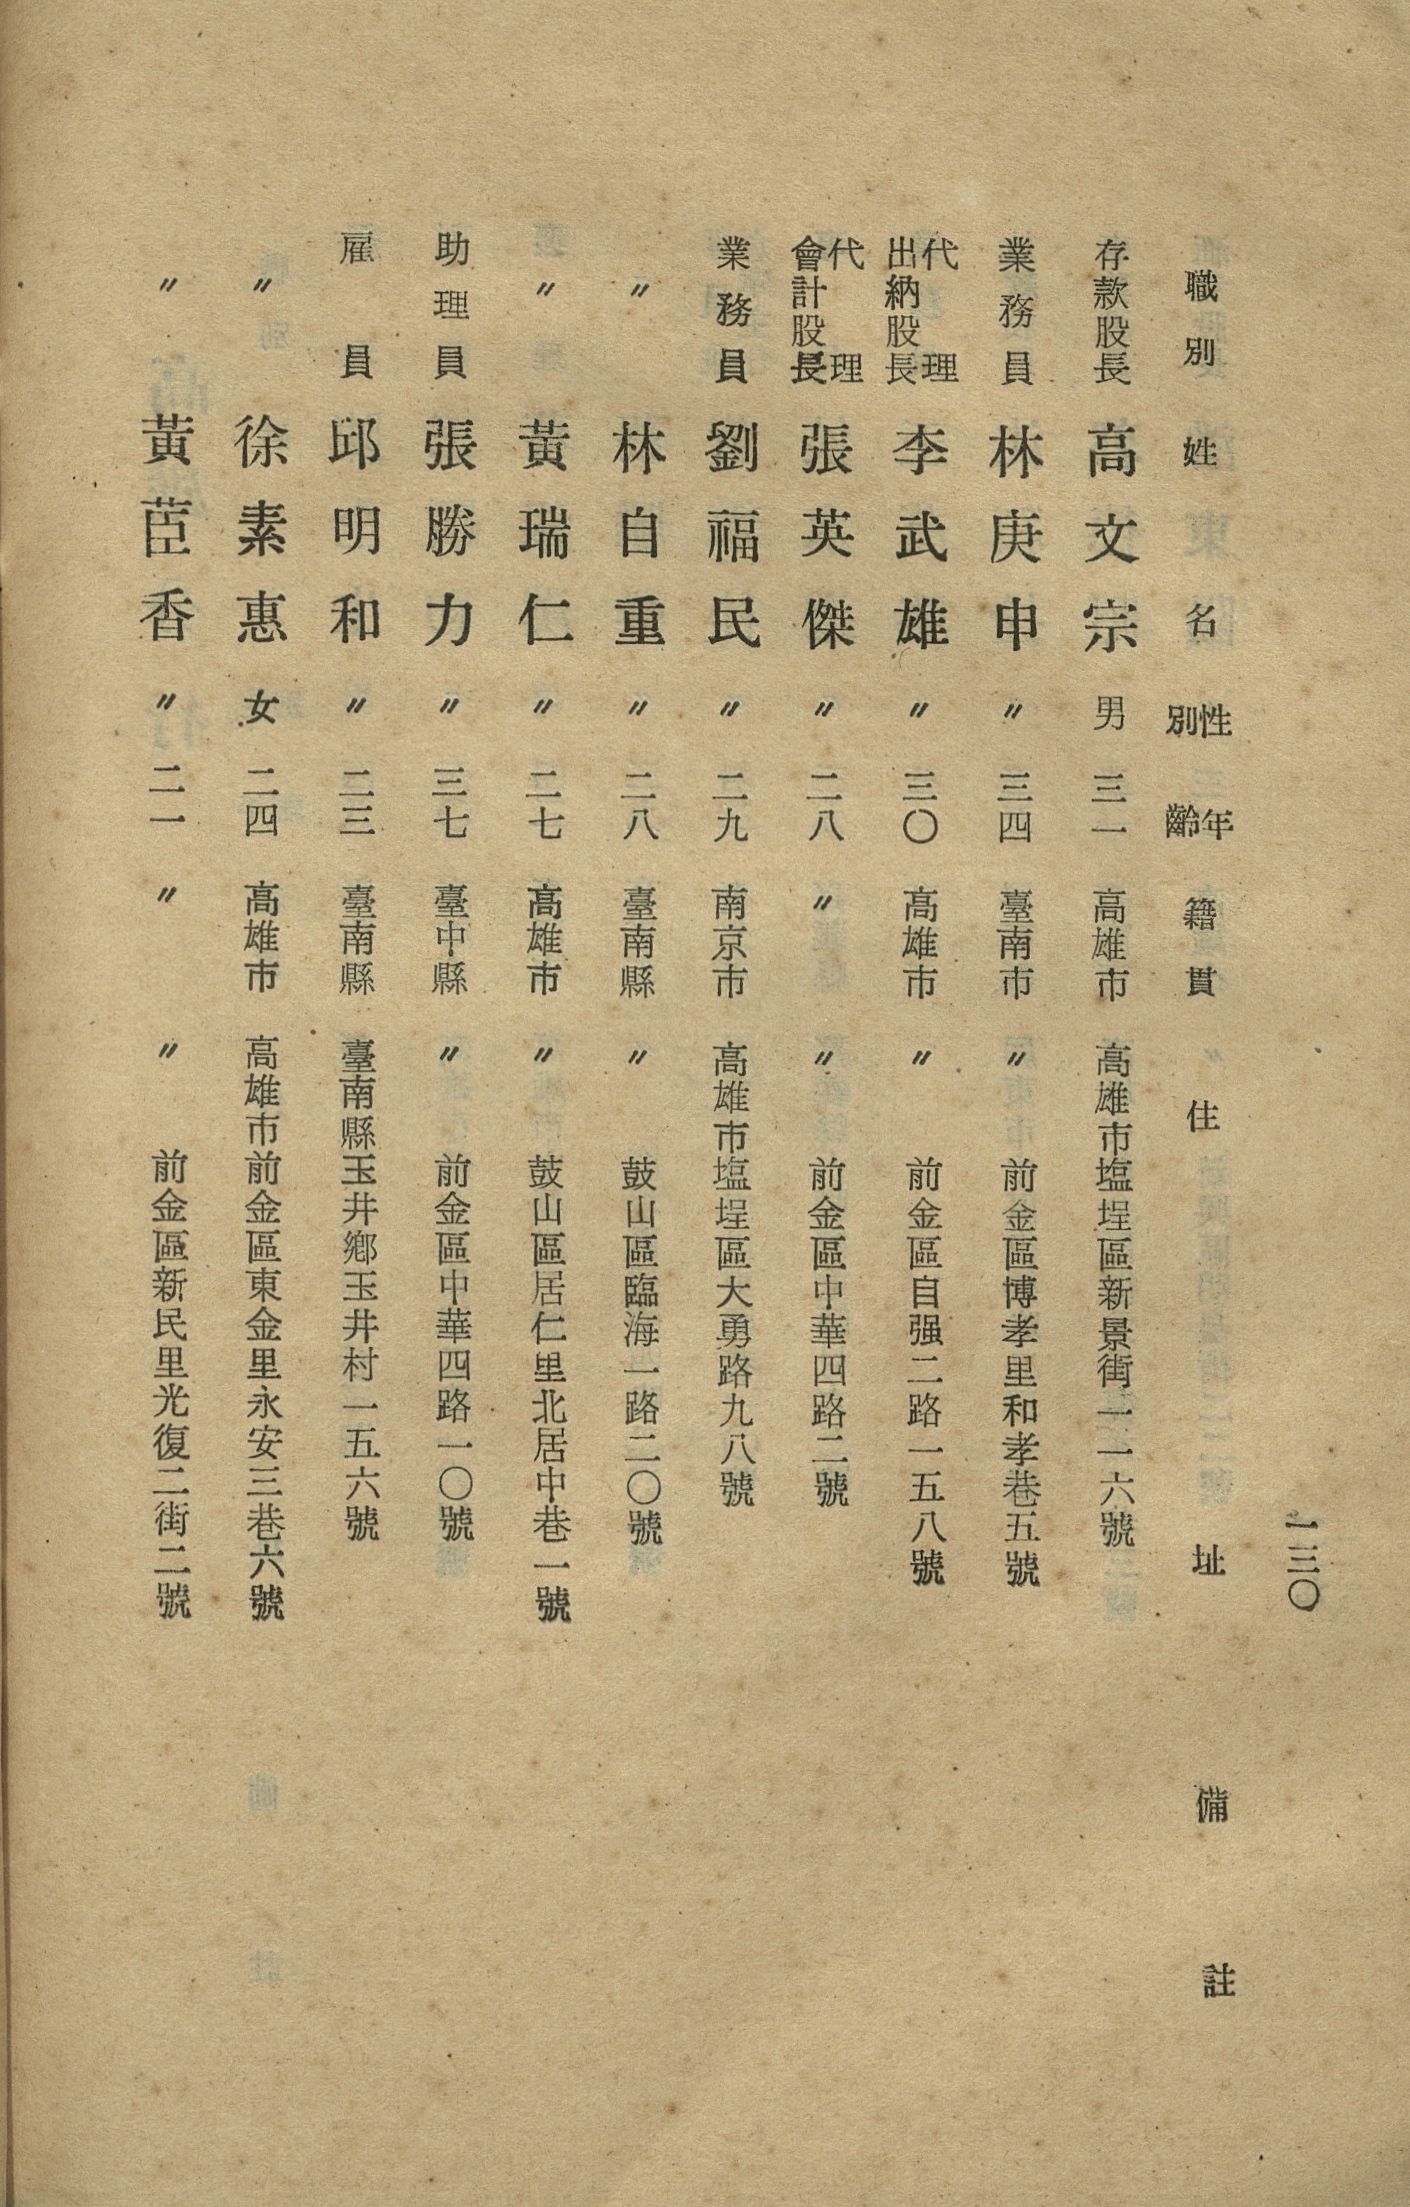 一三〇
職別 姓名 性別 年齡 籍貫 住址 備註
存款股長 高文宗 男 三一 高雄市 高雄市塩埕區新景街一一六號
業務員 林庚申 〃 三四 臺南市 〃 前金區博孝里和孝巷五號
代理出納股長 李武雄 〃 三〇 高雄市 〃 前金區自强二路一五八號
代理會計股長 張英傑 〃 二八 〃 〃 前金區中華四路二號
業務員 劉福民 〃 二九 南京市 高雄市塩埕區大勇路九八號
〃 林自重 〃 二八 臺南縣 〃 鼓山區臨海一路二〇號
〃 黃瑞仁 〃 二七 高雄市 〃 鼓山區居仁里北居中巷一號
助理員 張勝力 〃 三七 臺中縣 〃 前金區中華四路一〇號
雇員 邱明和 〃 二三 臺南縣 臺南縣玉井鄉玉井村一五六號
〃 徐素惠 女 二四 高雄市 高雄市前金區東金里永安三巷六號
〃 黃茞香 〃 二一 〃 〃 前金區新民里光復二街二號